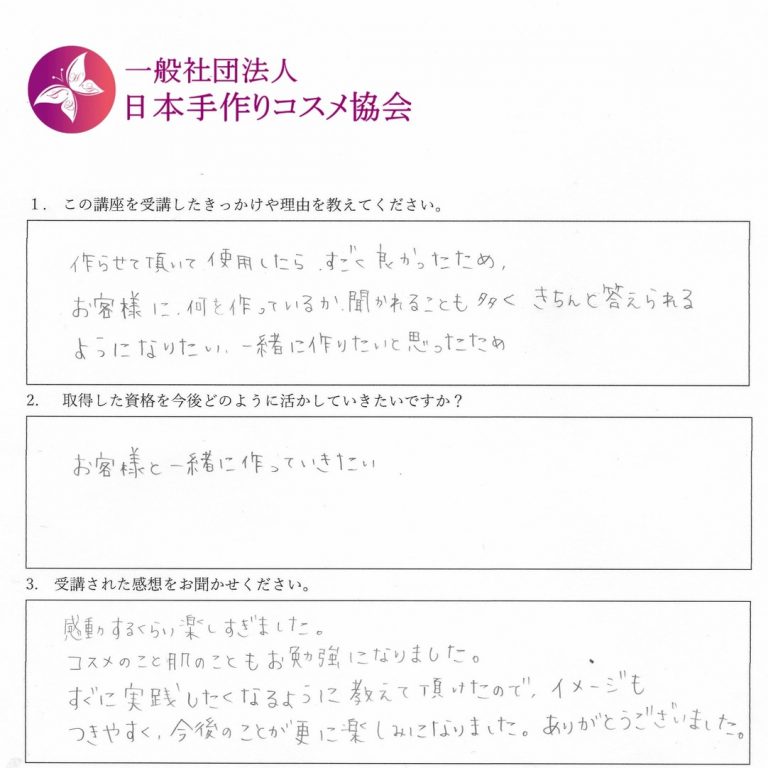 一般社団法人
日本手作りコスメ協会
1. この講座を受講したきっかけや理由を教えてください。
作らせて頂いて使用したら、すごく良かったため、
お客様に、何を作っているか、聞かれることも多く きちんと答えられる
ようになりたい、一緒に作りたいと思ったため
2. 取得した資格を今後どのように活かしていきたいですか？
お客様と一緒に作っていきたい
3. 受講された感想をお聞かせください。
感動するくらい楽しすぎました。
コスメのこと肌のこともお勉強になりました。
すぐに実践したくなるように教えて頂けたので、イメージも
つきやすく、今後のことが更に楽しみになりました。ありがとうございました。